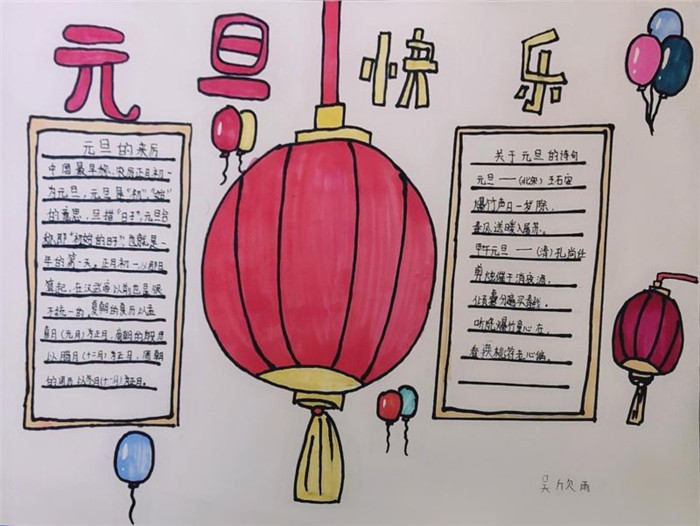 元旦快乐
元旦的来历
中国最早称农历正月初一
为元旦，元旦是“初”“始”
的意思，旦指“日子”，元旦合
称即“初始的日子”，也就是一
年的第一天。正月初一从那日
算起，在汉武帝以前也是很
不统一的，夏朝的夏历以孟
喜月（元月）为正月，商朝的殷历
以腊月（十二月）为正月，周朝
的周历以冬月（十一月）为正月。
关于元旦的诗句
元旦——（北宋）王石安
爆竹声日一岁除，
春风送暖入屠苏。
甲午元旦——（清）孔尚任
剪烛催干消夜酒，
倾囊分遍买春钱。
听烧爆竹童心在，
看换桃符老心偏。
吴欣雨